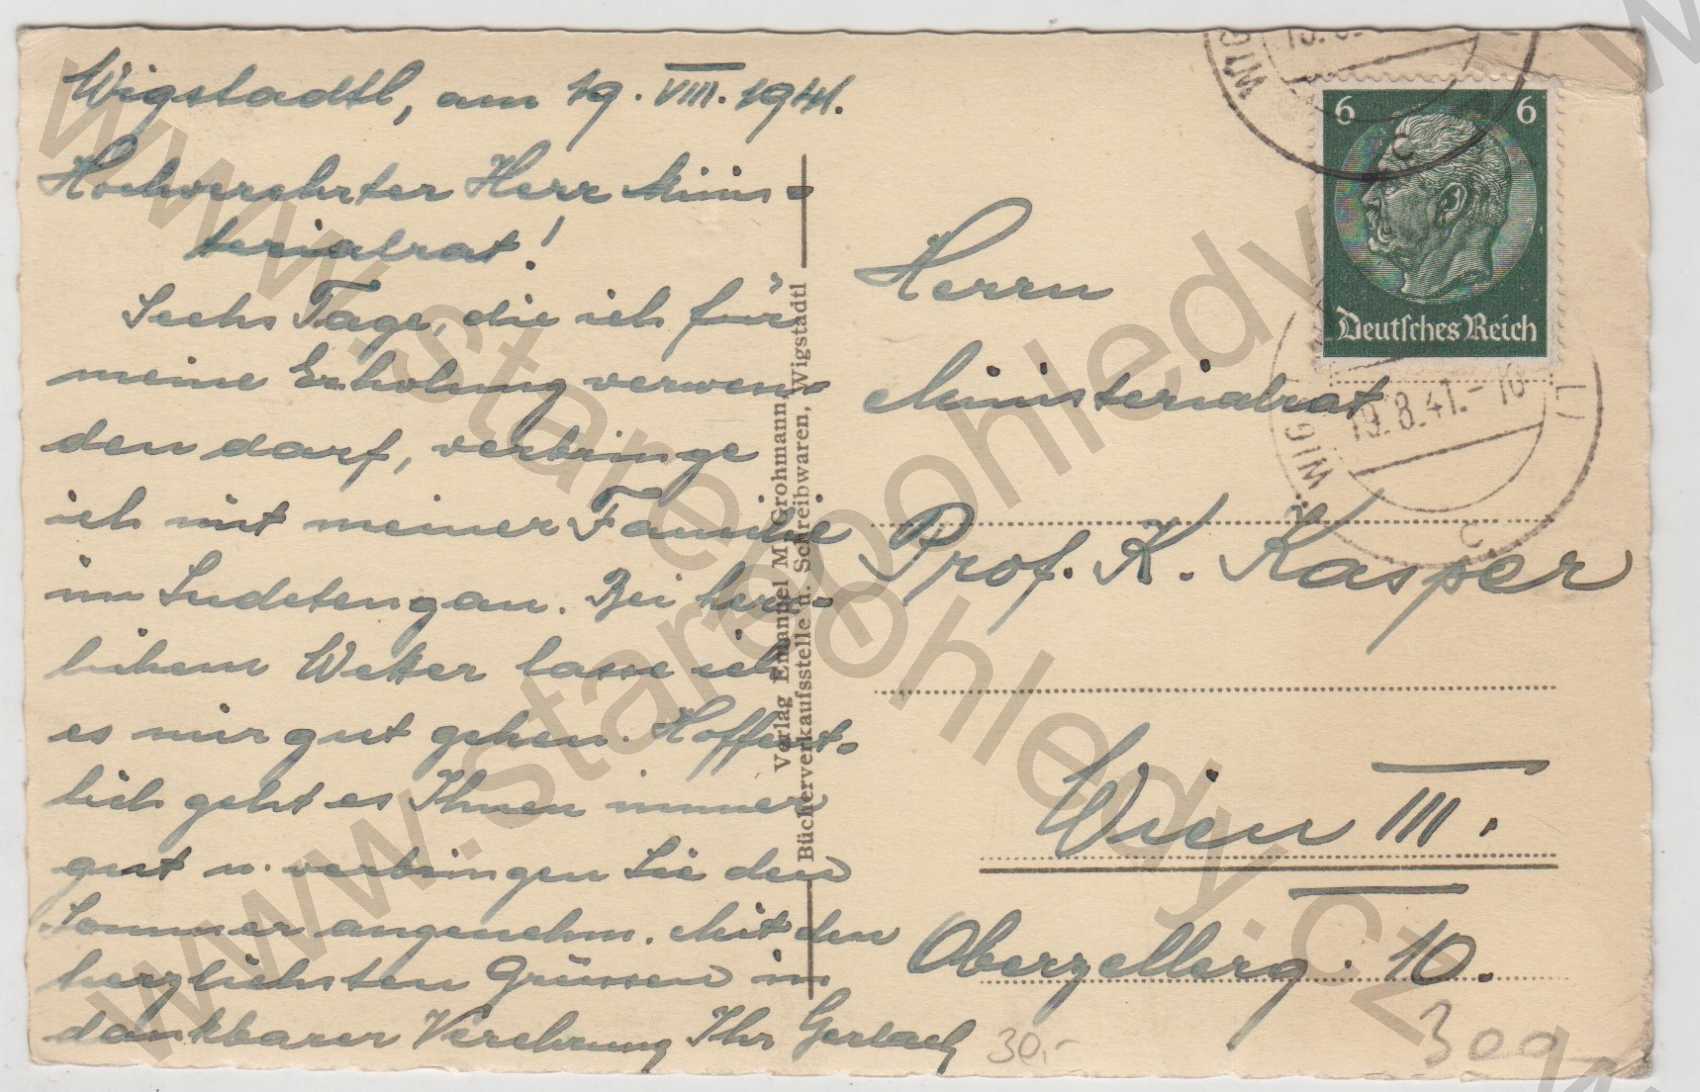 Wigstadtl, am 19. VIII. 1941.
Hochverehrter Herr Minis-
terialrat!
Sechs Tage, die ich für
meine Erholung verwen-
den darf, verbringe
ich mit meiner Familie
im Sudetengau. Bei herr-
lichem Wetter lasse ich
es mir gut gehen. Hoffent-
lich geht es Ihnen immer
gut u. verbringen Sie den
Sommer angenehm. Mit den
herzlichsten Grüssen in
dankbarer Verehrung Ihr Gerlach
30.-
Verlag Emanuel M. Grohmann,
Bücherverkaufsstelle u. Schreibwaren, Wigstadtl
6 6
Deutsches Reich
WIG
19.8.41.-
C
WIG
C
Herrn
Ministerialrat
Prof. K. Kasper
Wien III.
Oberzellerg. 10.
300
www.starepohledy.cz
www.starepohledy.cz